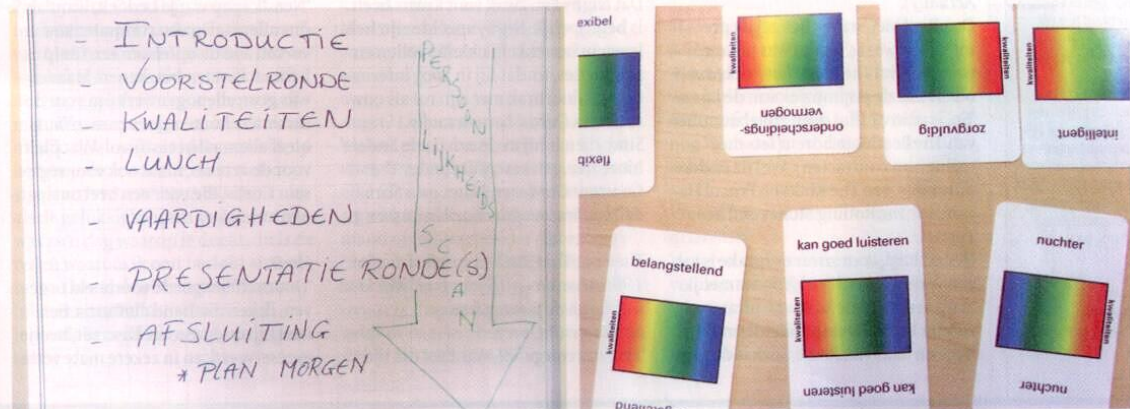 - INTRODUCTIE
- VOORSTELRONDE
- KWALITEITEN
- LUNCH
- VAARDIGHEDEN
- PRESENTATIE RONDE(S)
- AFSLUITING
* PLAN MORGEN
PERSOONLIJKHEIDS
SCAN
exibel
flexib
kwaliteiten
onderscheidings-
vermogen
kwaliteiten
zorgvuldig
intelligent
belangstellend
kwaliteiten
kan goed luisteren
kwaliteiten
kan goed luisteren
nuchter
kwaliteiten
nuchter